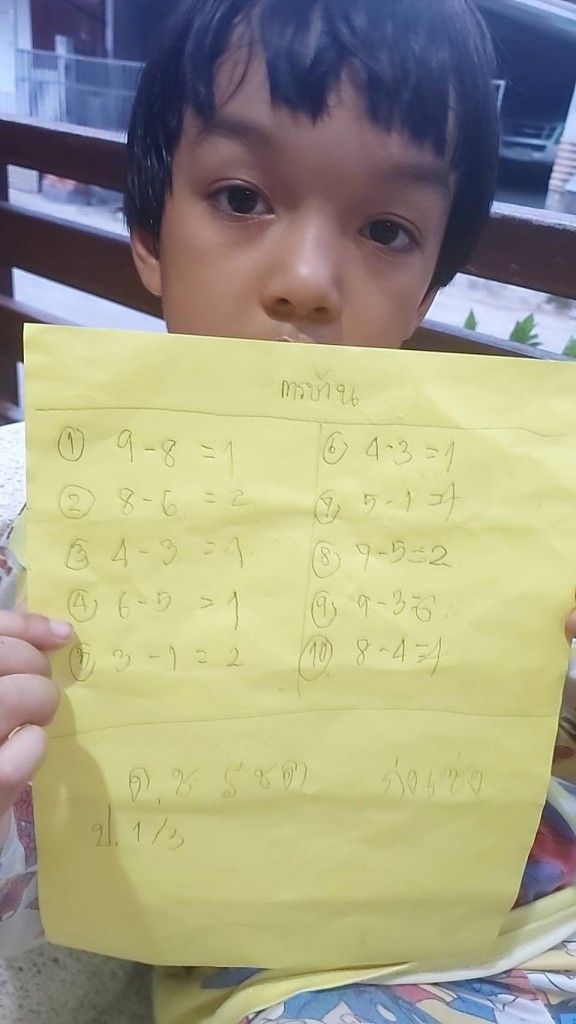 การบ้าน
① 9-8 =1
② 8-6 = 2
③ 4-3 =1
④ 6-5 =1
⑤ 3-1 = 2
⑥ 4-3=1
⑦ 5-1=4
⑧ 7-5=2
⑨ 9-3=6
⑩ 8-4=4
ด.ช
ป.1/3